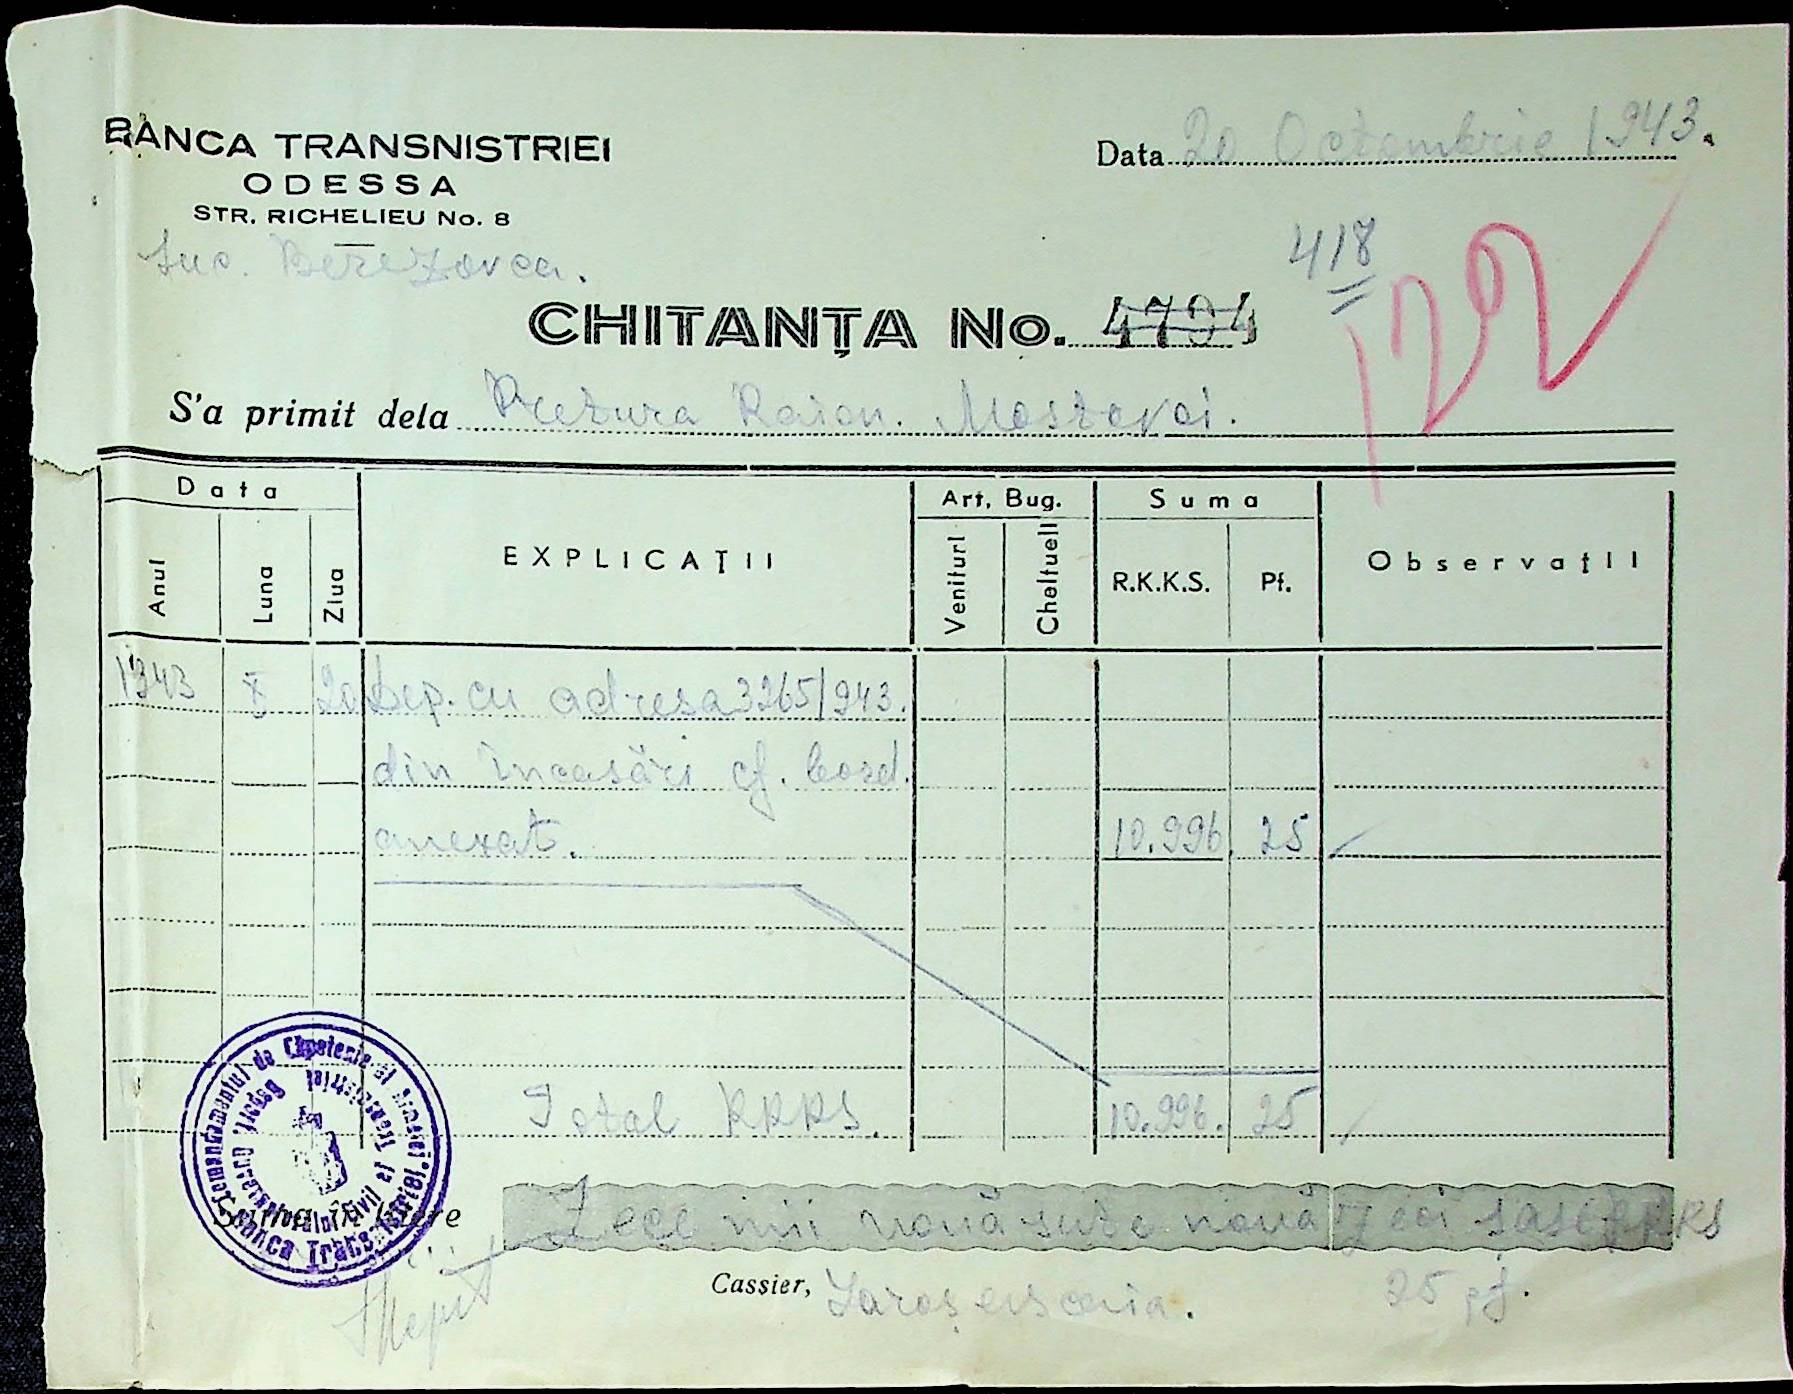 BANCA TRANSNISTRIEI
ODESSA
STR. RICHELIEU No. 8
Suc. Berezovca.
Data 20 Octombrie 1943.
418
122
CHITANȚA No. 4794
S'a primit dela Pretura Raion. Mostovoi.
Data
EXPLICAȚII
Art, Bug.
Suma
Observații
Anul
Luna
Ziua
Venituri
Cheltueli
R.K.K.S.
Pf.
1943 X 20 Dep. cu adresa 3265/943.
din încasări cf. bord.
anexat. 10.996. 25
Total RKKS. 10.996. 25
Comandamentul de Căpetenie al Armatei
Guvernământul Civil al Transnistriei
Banca Transnistriei
Suma în litere Zece mii nouă sute nouă zeci șase RKKS
25 pf.
Cassier,